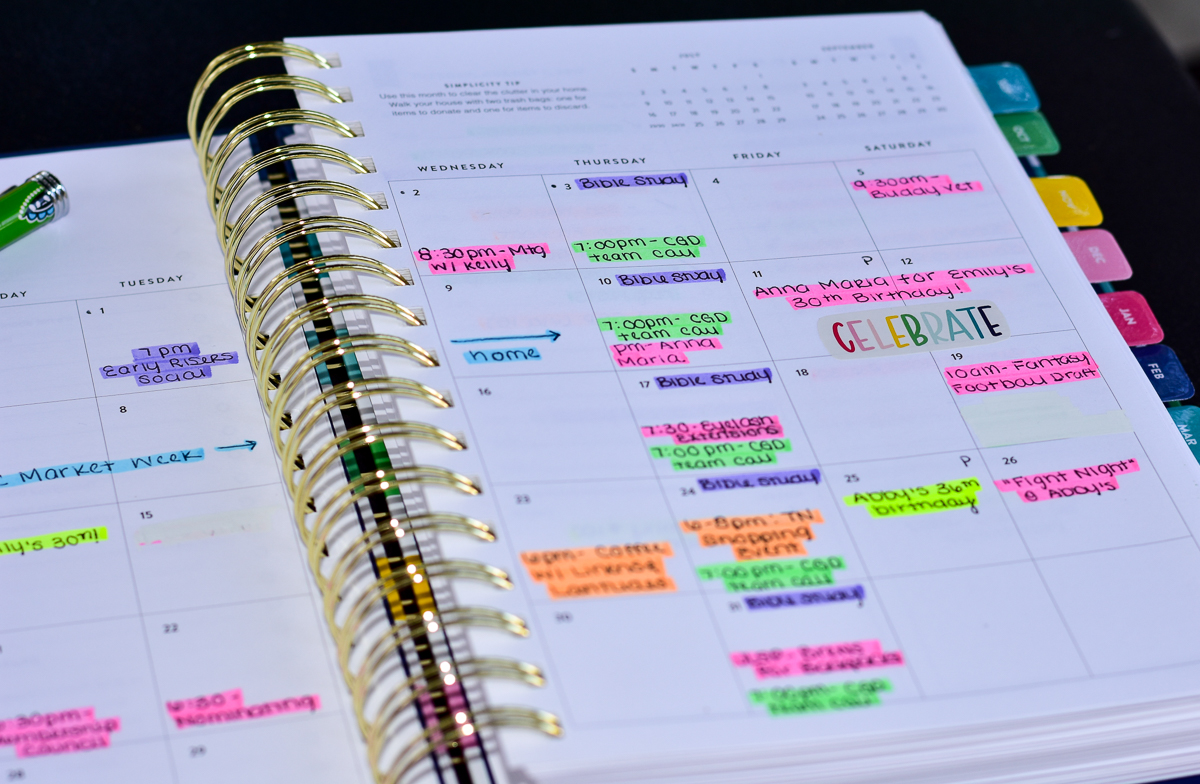 SIMPLICITY TIP
Use this month to clear the clutter in your home.
Walk your house with two trash bags: one for
items to donate and one for items to discard.
JULY
SEPTEMBER
TUESDAY
WEDNESDAY
THURSDAY
FRIDAY
SATURDAY
1
7pm
Early Risers
Social
2
8:30pm-Mtg
w/ Kelly
3 Bible Study
7:00pm-CGD
team call
4
5
9:30am-
Buddy vet
8
Market Week
9
home
10 Bible Study
7:00pm-CGD
team call
pm-Anna
Maria
11
P
12
Anna Maria for Emily's
30th Birthday!
CELEBRATE
ly's 30th!
15
16
17 Bible Study
7:30-Eyelash
Extensions
7:00pm-CGD
team call
18
19
10am-Fantasy
Football Draft
22
6:30-
Nominating
:30pm-
Council
23
6pm-Coffee
w/
24 Bible Study
6-8pm: TN
Shopping
Event
7:00pm-CGD
team call
25
P
Abby's 36th
birthday
26
"Fight Night"
@ Abby's
28
29
30
31 Bible Study
7:00pm-CGD
team call
OCT
DEC
JAN
FEB
MAR